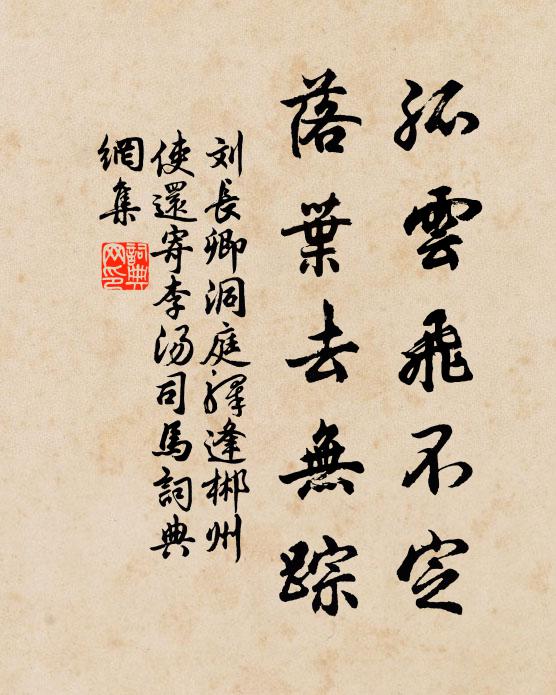 孤雲飛不定
落葉去無踪
刘長卿洞庭驛逢郴州
使還寄李汤司馬詞典
網集
詞典
网印